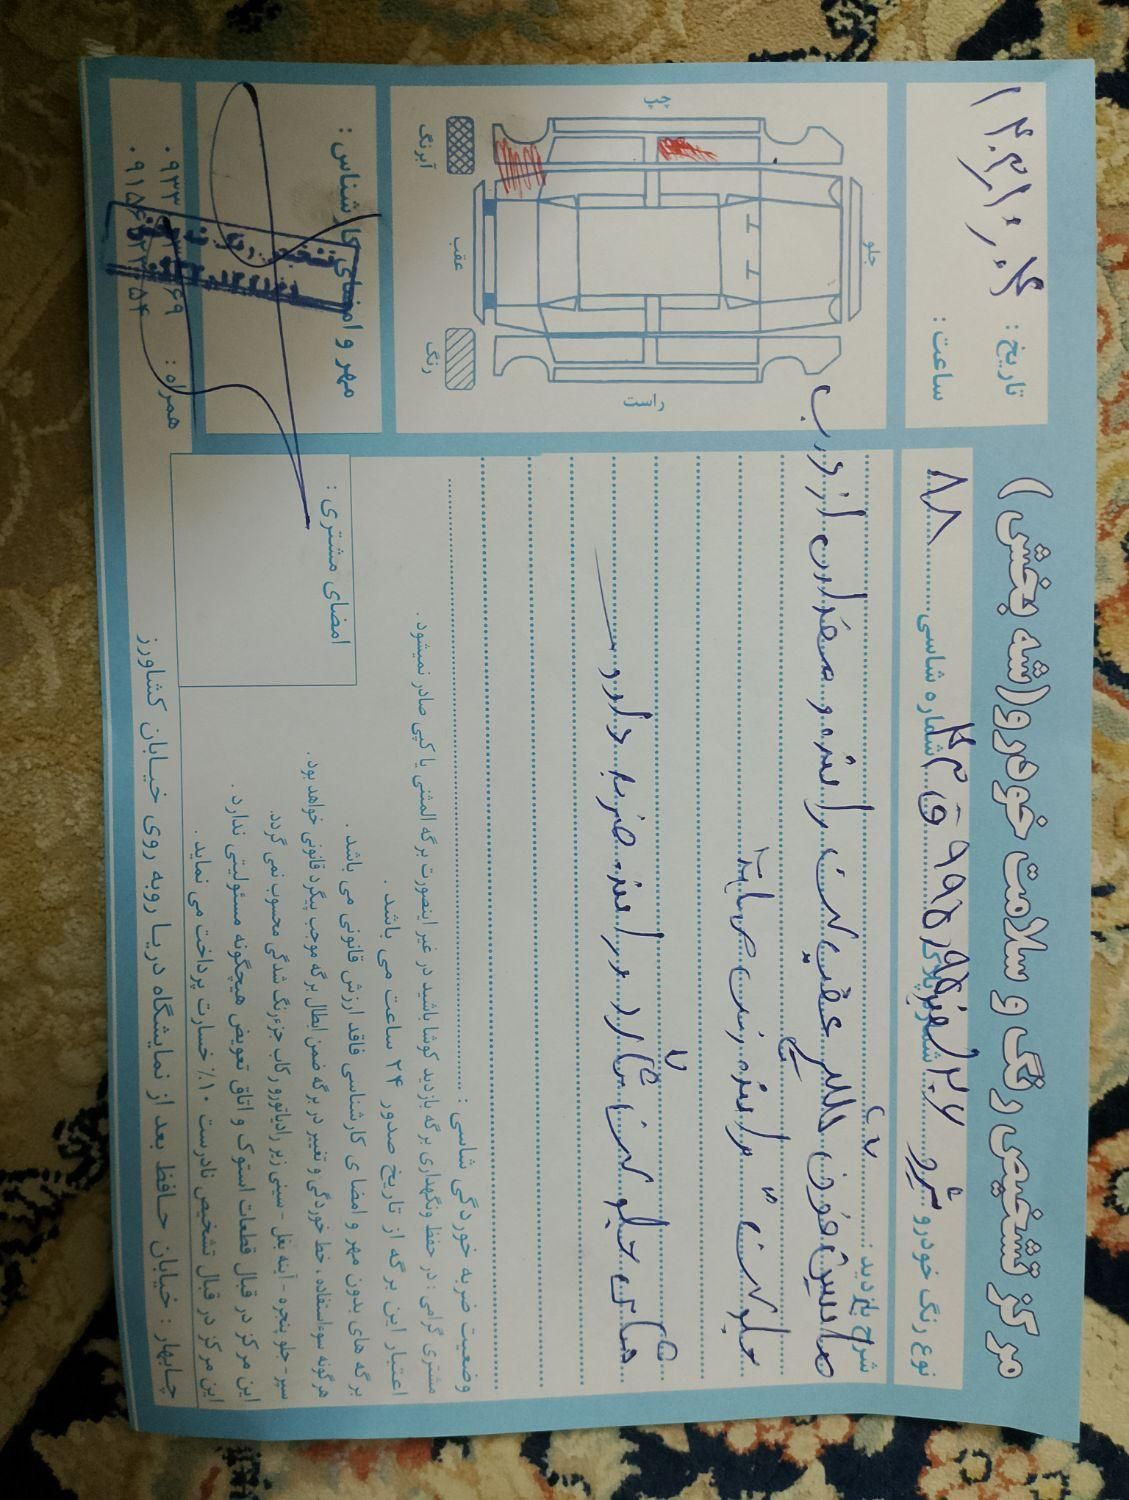 مرکز تشخیص رنگ و سلامت خودرو (شه بخش)
تاریخ :
ساعت :
نوع رنگ خودرو
شماره پلاک
شماره شاسی
۸۸
شرح بازدید :
ماشین فوق گلگیر عقب سمت راننده و مقداری از درب
جلو سمت راننده رنگ
های جلو سمت شاگرد و راننده ضربه دارد
وضعیت ضربه خوردگی شاسی :
مشتری گرامی : در حفظ ونگهداری برگه بازدید کوشا باشید در غیر اینصورت برگه المثنی یا کپی صادر نمیشود.
اعتبار این برگه از تاریخ صدور ۲۴ ساعت می باشد .
برگه های بدون مهر و امضا ی کارشناسی فاقد ارزش قانونی می باشد .
هر گونه سوءاستفاده ، خط خوردگی و تغییر در برگه ضمن ابطال برگه موجب پیگرد قانونی خواهد بود.
سپر - جلو پنجره - آینه بغل - سینی زیر رادیاتور و رکاب جزو رنگ شدگی محسوب نمی گردد.
این مرکز در قبال قطعات استوک و اتاق تعویض هیچگونه مسئولیتی ندارد .
این مرکز در قبال تشخیص نادرست ۱۰٪ خسارت پرداخت می نماید.
چپ
جلو
عقب
راست
آبرنگ
رنگ
مهر و امضای کارشناس :
امضای مشتری :
همراه :
چابهار : خیابان حافظ بعد از نمایشگاه دریا روبه روی خیابان کشاورز